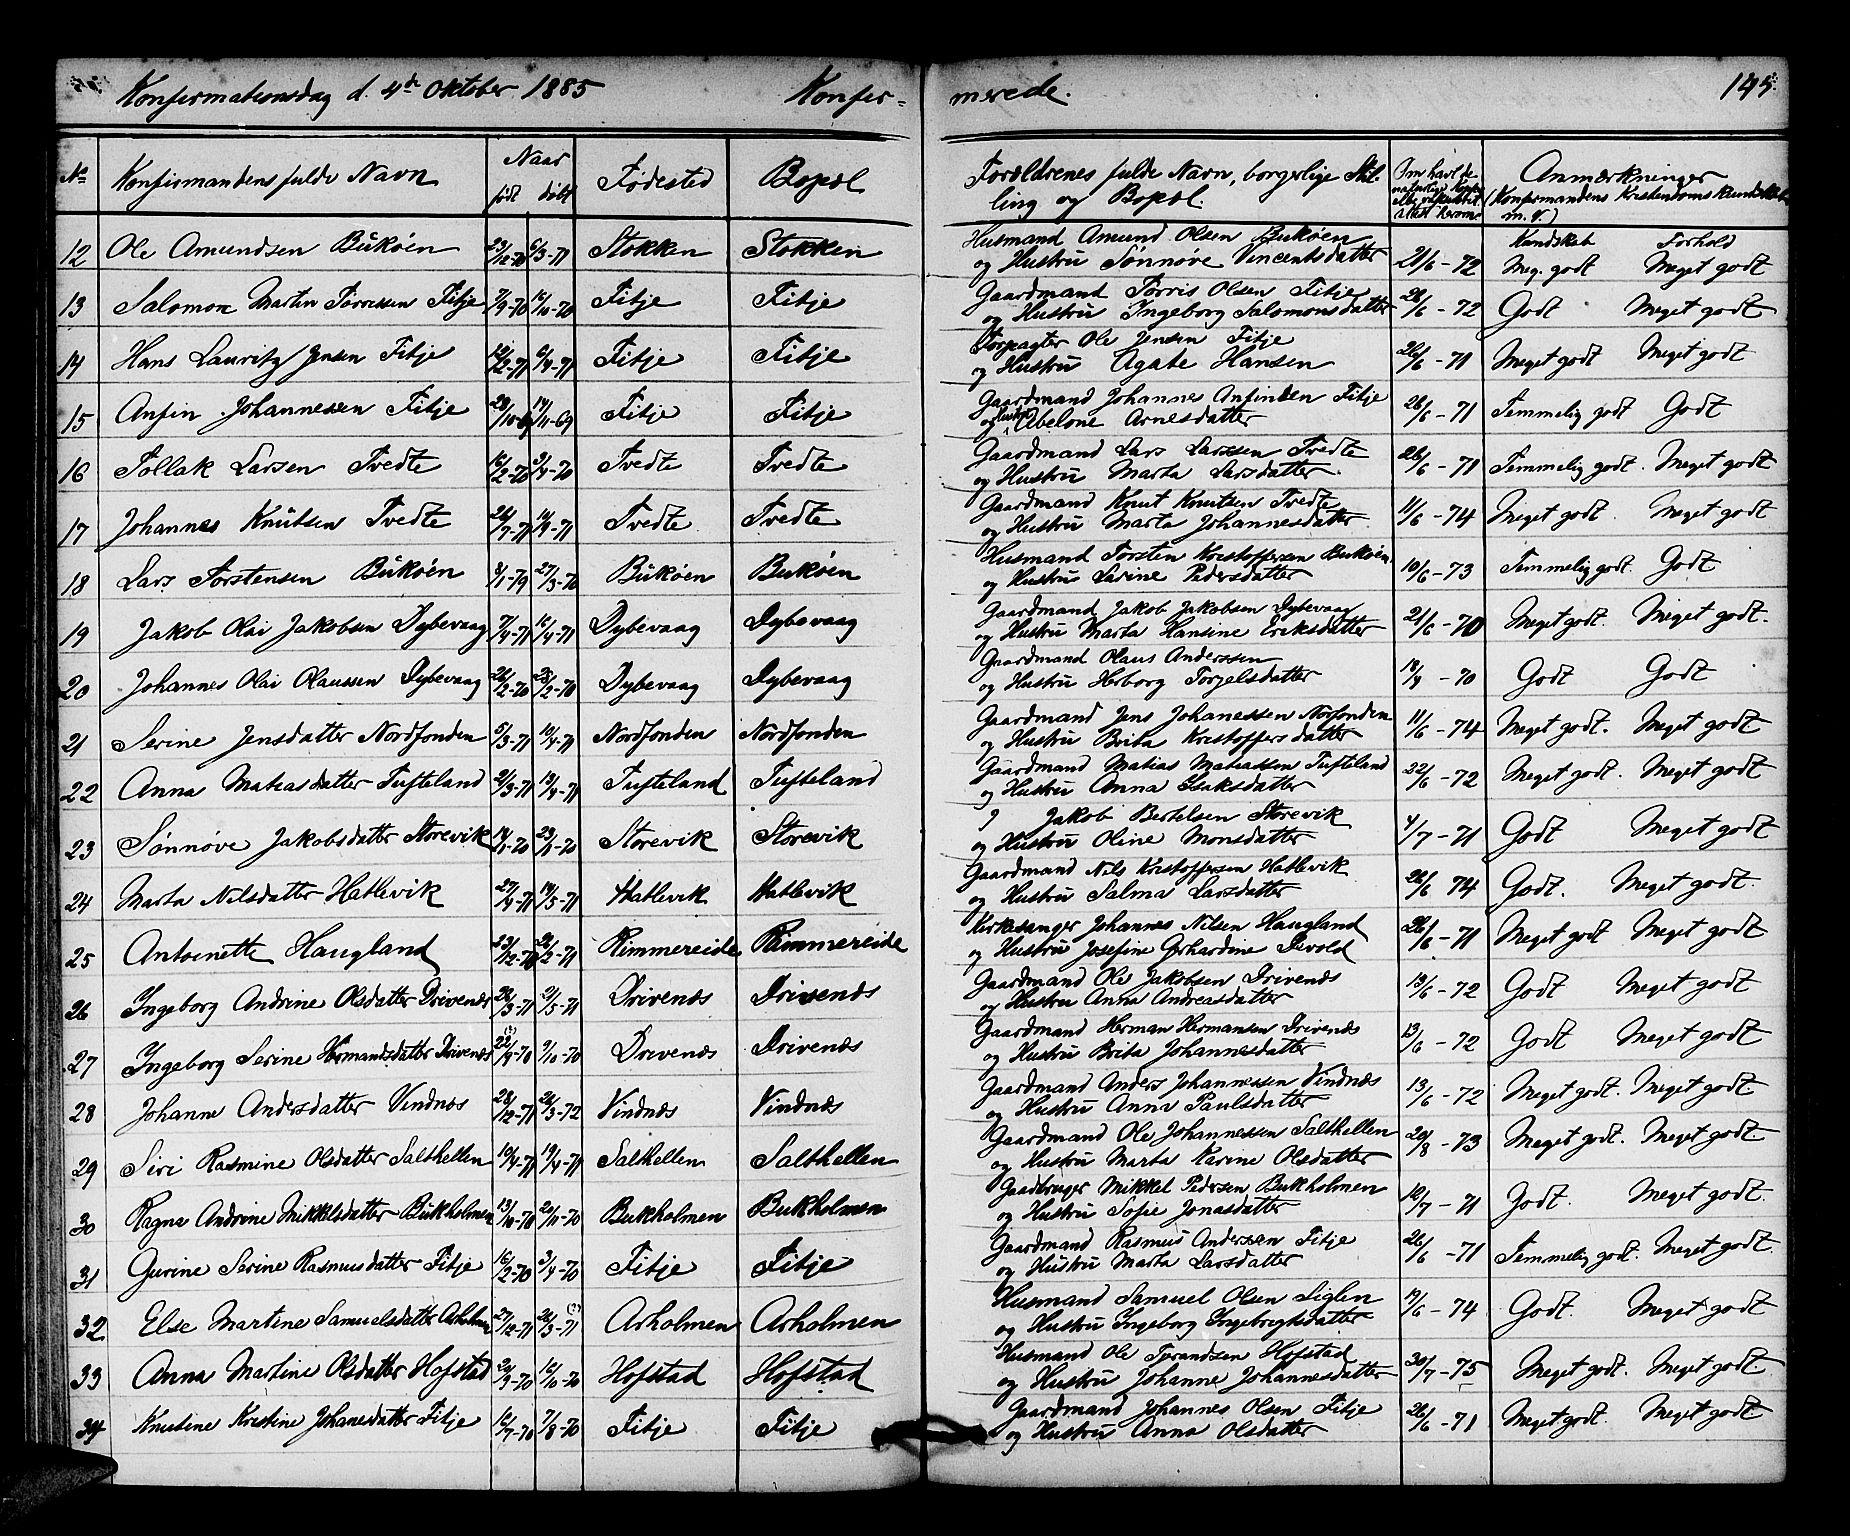 Konfirmationsdag d. 4de Oktober 1885 Konfir-
merede. 145.
No Konfirmandens fulde Navn Naar født døbt Fødested Bopæl Forældrenes fulde Navn, borgerlige Stil-
ling og Bopæl. Om havt de naturlige Kopper Anmærkninger
(Konfirmandens Kristendoms Kundskab m. v.)
Kundskab Forhold
12 Ole Amundsen Bukøen 23/12-70 6/3-71 Stokken Stokken Husmand Amund Olsen Bukøen
og Hustru Sønnøve Vincentsdatter 21/6-72 Meg. godt Meget godt
13 Salomon Martin Torressen Fitje 7/9-70 16/10-70 Fitje Fitje Gaardmand Torris Olsen Fitje
og Hustru Ingeborg Salomonsdatter 26/6-72 Godt Meget godt
14 Hans Lauritz Jensen Fitje 12/2-71 6/4-71 Fitje Fitje Forpagter Ole Jensen Fitje
og Hustru Agate Hansen 26/6-71 Meget godt Meget godt
15 Anfin Johannessen Fitje 28/10-69 14/11-69 Fitje Fitje Gaardmand Johannes Anfindsen Fitje
og Hustru Abelone Arnesdatter 26/6-71 Temmelig godt Godt
16 Tollak Larsen Tvedte 16/2-70 3/4-70 Tvedte Tvedte Gaardmand Lars Larssen Tvedte
og Hustru Marta Larsdatter. 26/6-71 Temmelig godt. Meget godt
17 Johannes Knutsen Tvedte Tvedte Tvedte Gaardmand Knut Knutsen Tvedte
og Hustru Marta Johannesdatter 11/6-74 Meget godt Meget godt
18 Lars Torstensen Bukøen 27/3-70 Bukøen Bukøen Husmand Torsten Kristoffersen Bukøen
og Hustru Serine Pedersdatter 10/6-73 Temmelig godt. Godt
19 Jakob Olai Jakobsen Dybevaag 7/4-71 16/4-71 Dybevaag Dybevaag Gaardmand Jakob Jakobsen Dybevaag
og Hustru Marta Hansine Eriksdatter 21/6-70 Meget godt. Meget godt.
20 Johannes Olai Olaussen Dybevaag Dybevaag Dybevaag Gaardmand Olaus Anderssen
og Hustru Herborg Torgelsdatter Godt Godt
21 Serine Jensdatter Nordfonden 5/3-71 10/4-71 Nordfonden Nordfonden Gaardmand Jens Johanessen Norfonden
og Hustru Brita Kristoffersdatter 11/6-74 Meget godt. Meget godt
22 Anna Matiasdatter Tufteland 2/3-71 13/4-71 Tufteland Tufteland Gaardmand Matias Matiassen Tufteland
og Hustru Anna Isaksdatter 22/6-72 Meget godt. Meget godt
23 Sønnøve Jakobsdatter Storevik Storevik Storevik ? Jakob Bertelsen Storevik
og Hustru Oline Monsdatter 4/7-71 Godt Meget godt
24 Marta Nilsdatter Hatlevik 27/4-71 14/5-71 Hatlevik Hatlevik Gaardmand Nils Kristoffersen Hatlevik
og Hustru Salma Larsdatter 26/6 74 Godt. Meget godt.
25 Antoinette Haugland 23/12-70 26/2-71 Rimmereide Rimmereide Kirkesanger Johannes Nilsen Haugland
og Hustru Josefine Gerhardine Devold 26/6-71 Meget godt Meget godt
26 Ingeborg Andrine Olsdatter Drivenæs 28/3-71 9/5-71 Drivenæs Drivenæs Gaardmand Ole Jakobsen Drivenæs
og Hustru Anna Andreasdatter 13/6-72 Godt Meget godt
27 Ingeborg Serine Hermandsdatter Drivenæs 22(?)/9-70 9/10-70 Drivenæs Drivenæs Gaardmand Herman Hermansen Drivenæs
og Hustru Brita Johannesdatter 13/6-72 Godt Meget godt
28 Johanne Andersdatter Vindnæs 28/12-71 24/3-72 Vindnæs Vindnæs Gaardmand Anders Johannessen Vindnæs
og Hustru Anna Paulsdatter 13/6-72 Meget godt. Meget godt
29 Siri Rasmine Olsdatter Salthellen 10/4-71 19/4-71 Salthellen Salthellen Gaardmand Ole Johannessen Salthellen
og Hustru Marta Karine Olsdatter 20/8-73 Meget godt. Meget godt.
30 Ragna Andrine Mikkelsdatter Bukholmen 13/10-70 20/11-70 Bukholmen Bukholmen Gaardbruger Mikkel Pedersen Bukholmen
og Hustru Sofie Jonasdatter 12/7-71 Godt. Meget godt.
31 Gurine Serine Rasmusdatter Fitje 16/2-70 3/4-70 Fitje Fitje Gaardmand Rasmus Anderssen Fitje
og Hustru Marta Larsdatter 26/6-71 Temmelig godt. Meget godt.
32 Else Martine Samuelsdatter Arholmen 27/12-71 26/3-71(?) Arholmen Arholmen Husmand Samuel Olsen Seglen
og Hustru Ingeborg Ingebregtsdatter 19/6-74 Godt. Meget godt
33 Anna Martine Olsdatter Hofstad 24/9-70 16/10-70 Hofstad Hofstad Husmand Ole Torandsen Hofstad
og Hustru Johanne Johannesdatter 30/7-75 Meget godt. Meget godt.
34 Knutine Kristine Johanesdatter Fitje 16/7-70 7/8-70 Fitje Fitje Gaardmand Johannes Olsen Fitje
og Hustru Anna Olsdatter 26/6-71 Meget godt. Meget godt